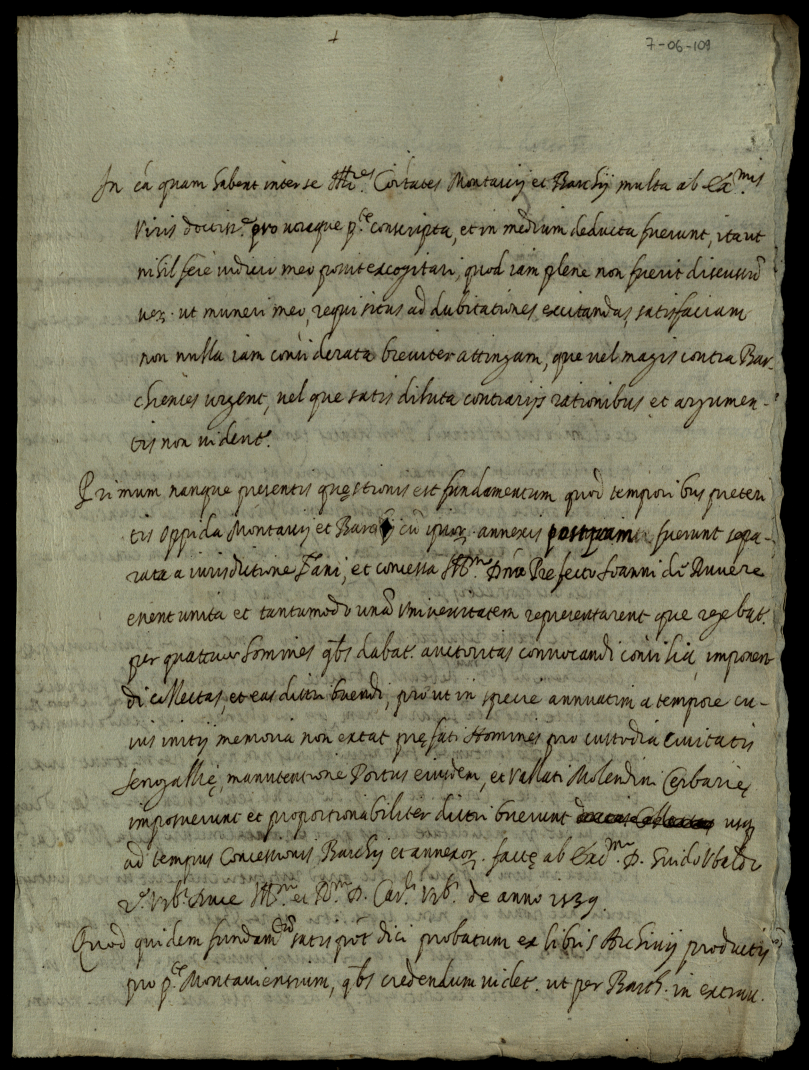 +
7-06-109
In ea quam habent inter se Ill.es Cõitates Montavij et Barchij multa ab Ex.mis
viris doctiss. pro utraque p.te conscripta, et in medium deducta fuerunt, ita ut
nihil fere iudicio meo possit excogitari, quod iam plene non fuerit discussũ
ver. ut muneri meo, requisitus ad dubitationes excitandas, satisfaciam
non nulla iam considerata breviter attingam, que vel magis contra Bar-
chienses urgent, vel que satis diluta contrarijs rationibus et argumen-
tis non vident.
Primum nanque presentis quęstionis est fundamentum quod temporibus preteri
tis oppida Montavij et Barchij cũ ipsor. annexis postquam fuerunt sepa-
rata a iurisdictione Fani, et concessa Ill.mo Dño Prefecto Joanni de Ruvere
erent unita et tantumodo unã universitatem representarent que regebat.
per quattuor homines qbs dabat. auctoritas convocandi consilia, imponen
di collectas et eas distribuendi, prout in specie annuatim a tempore cu-
ius initij memoria non extat pręfati Homines pro custodia Civitatis
Senogallię, manutentione Portus eiusdem, et vallati Molendini Cerbarię
imposuerunt et proportionabiliter distribuerunt usq
ad tempus Concessionis Barchij et annexor. factę ab Ex.mo D. Guido Ubaldo
2.o Urb. Duce Ill.mo et R.mo D. Car.li Urb. de anno 1539.
Quod quidem fundam.tũ satis põt dici probatum ex libris Archivij productis
pro p.te Montaviensium, qbs credendum videt. ut per Barth. in extrav.